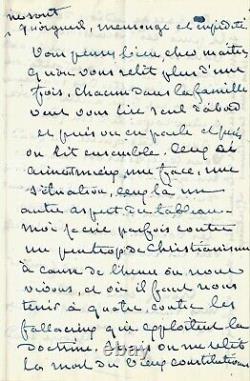 ne sont
qu'orgueil, mensonge et cupidité
Vous pensez bien, cher maître,
qu'on vous relit plus d'une
fois, chacun dans la famille
veut vous lire seul d'abord
et puis on en parle et puis
on lit ensemble. Ceux ci
aiment mieux une face, une
situation, ceux là un
autre aspect du tableau.
moi je crie parfois contre
un peu trop de Christianisme
à cause de l'heure où nous
vivons, et où il faut nous
tenir à quatre, contre les
qui exploitent la
doctrine. Mais on me relit
la mort du vieux constitution